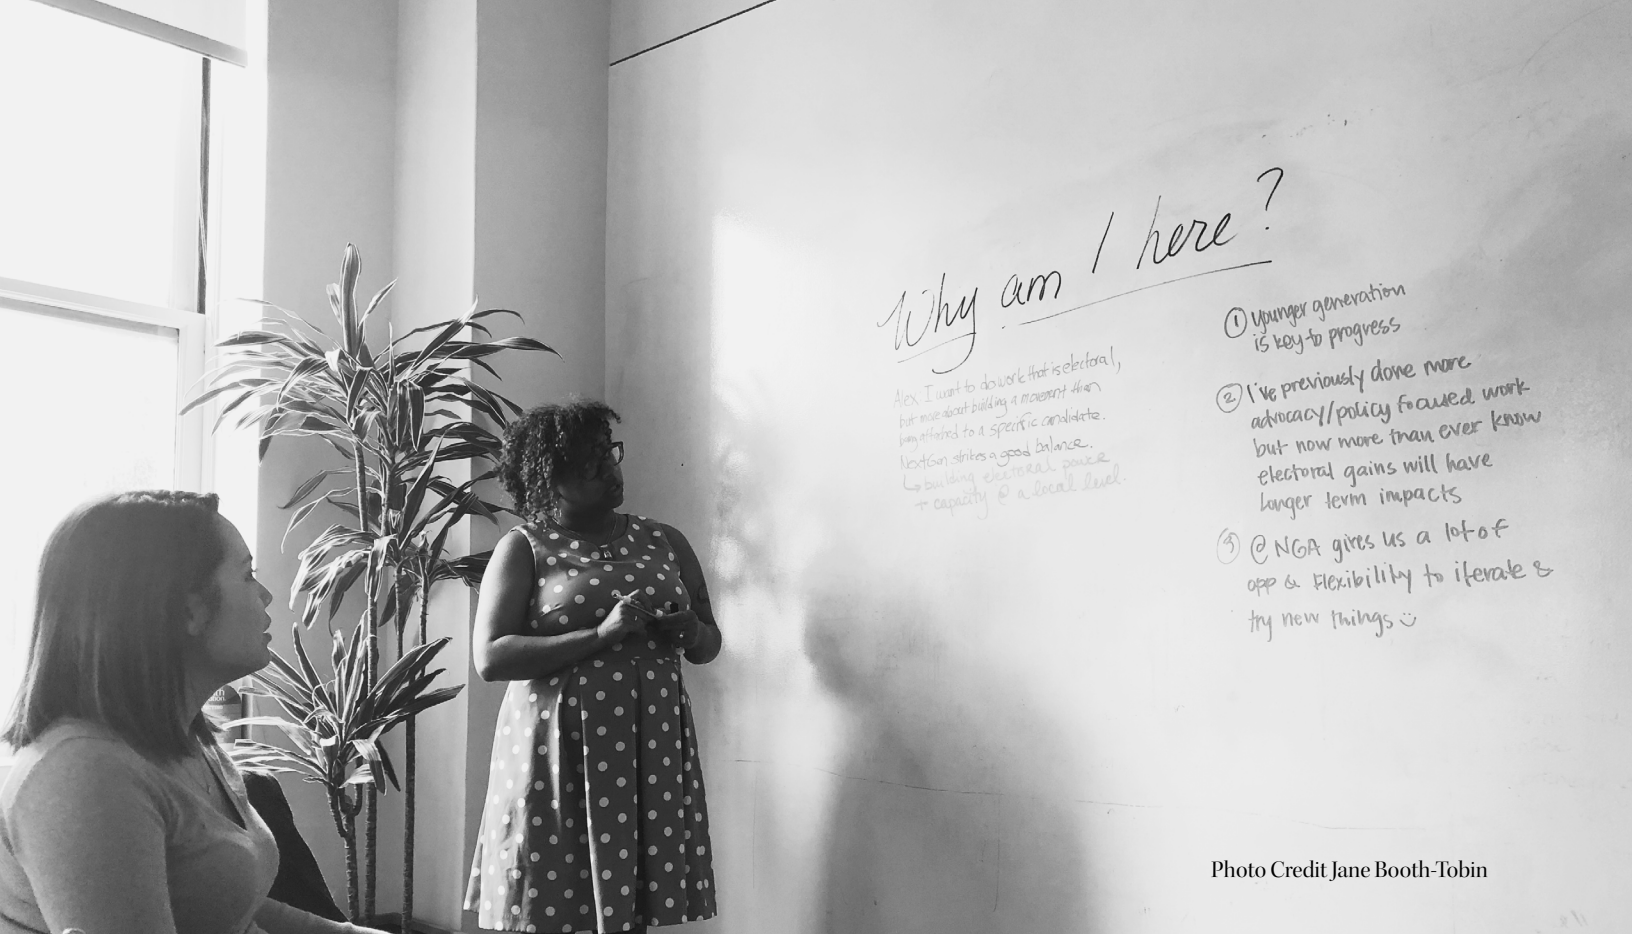 Why am I here?
Alex I want to do work that is electoral,
but more about building a movement than
being attached to a specific candidate.
NextGen strikes a good balance.
↳ building electoral power
+ capacity @ a local level.
① younger generation
is key to progress
② I've previously done more
advocacy/policy focused work
but now more than ever know
electoral gains will have
longer term impacts
③ @ NGA gives us a lot of
opp & flexibility to iterate &
try new things
Photo Credit Jane Booth-Tobin